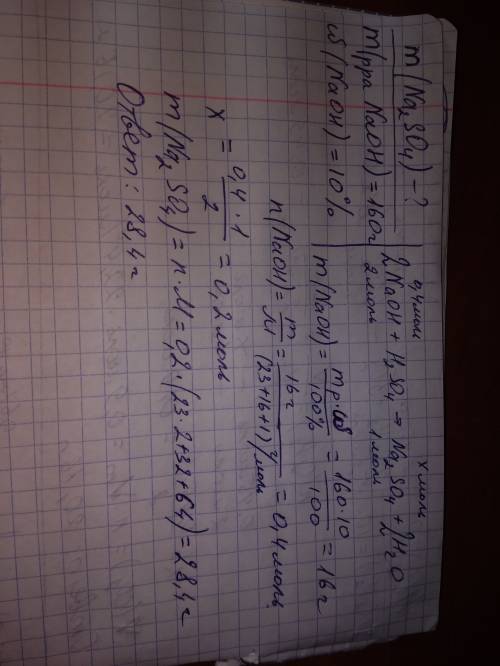 m(Na₂SO₄) - ?
m(р-ра NaOH) = 160г
ω(NaOH) = 10%
0,4моль x моль
2NaOH + H₂SO₄ → Na₂SO₄ + 2H₂O
2моль 1моль
m(NaOH) = mр·ω / 100% = 160·10 / 100 = 16г
n(NaOH) = m / M = 16г / (23+16+1)г/моль = 0,4моль
x = 0,4·1 / 2 = 0,2моль
m(Na₂SO₄) = n·M = 0,2·(23·2+32+64) = 28,4г
Ответ: 28,4г